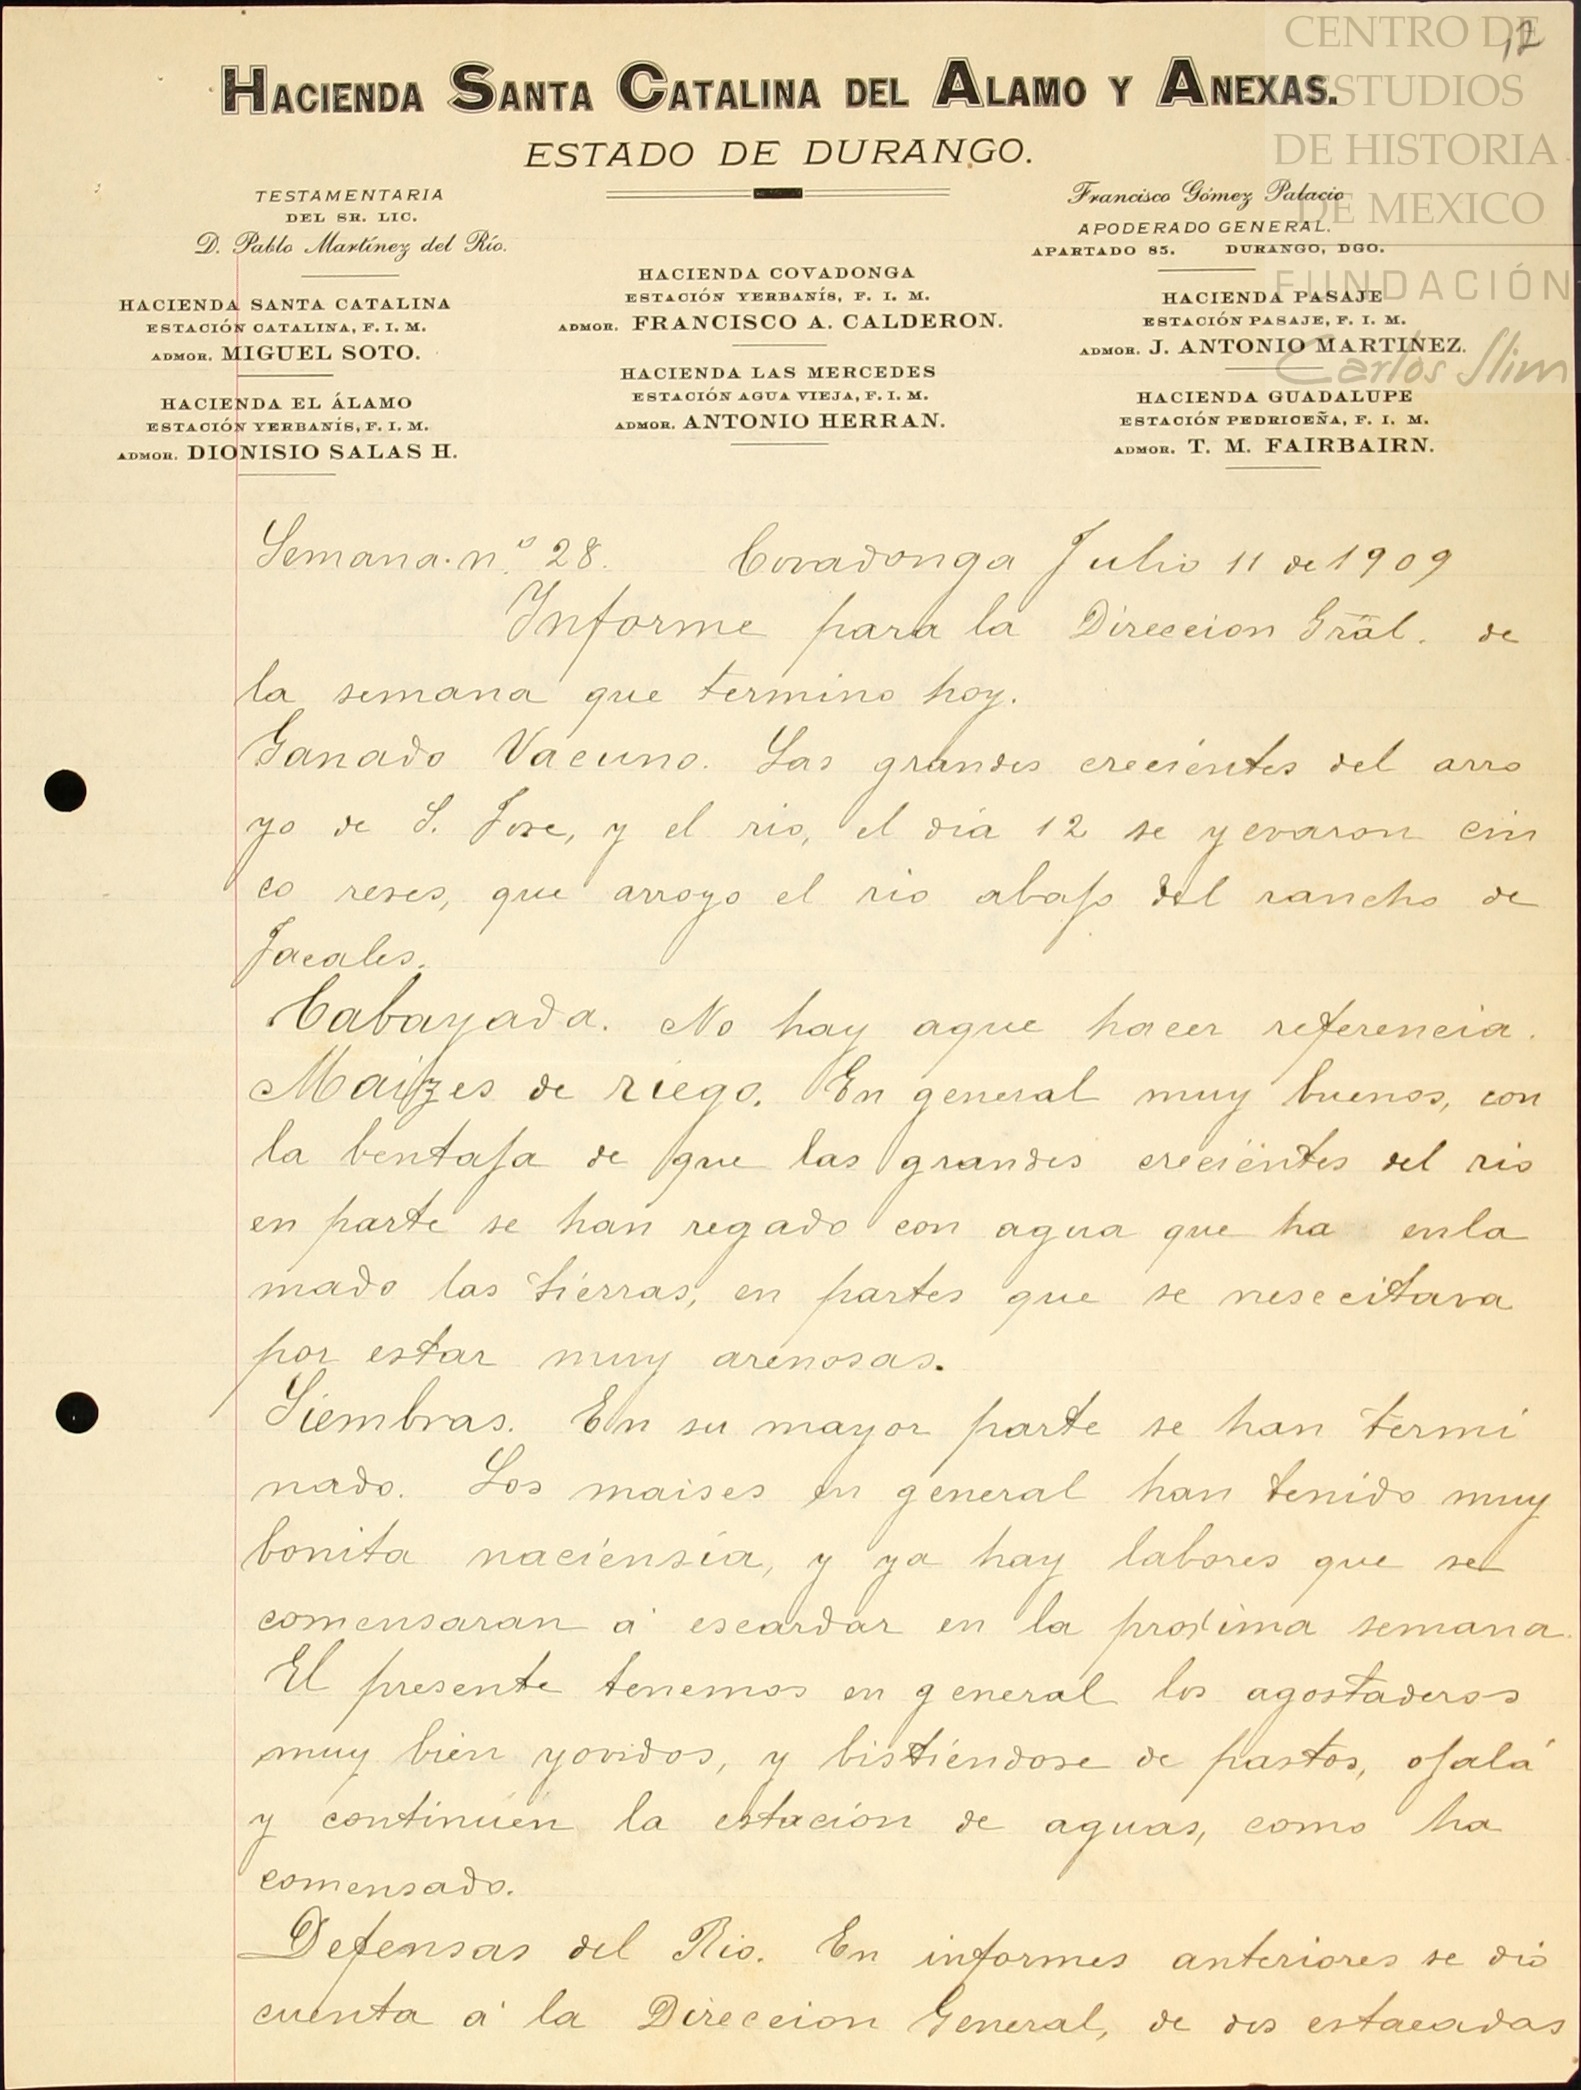 CENTRO DE
ESTUDIOS
DE HISTORIA
DE MEXICO
FUNDACIÓN
Carlos Slim
12
HACIENDA SANTA CATALINA DEL ALAMO Y ANEXAS.
ESTADO DE DURANGO.
TESTAMENTARIA
DEL SR. LIC.
D. Pablo Martínez del Río.
HACIENDA SANTA CATALINA
ESTACIÓN CATALINA, F. I. M.
ADMOR. MIGUEL SOTO.
HACIENDA EL ÁLAMO
ESTACIÓN YERBANÍS, F. I. M.
ADMOR. DIONISIO SALAS H.
HACIENDA COVADONGA
ESTACIÓN YERBANÍS, F. I. M.
ADMOR. FRANCISCO A. CALDERON.
HACIENDA LAS MERCEDES
ESTACIÓN AGUA VIEJA, F. I. M.
ADMOR. ANTONIO HERRAN.
Francisco Gómez Palacio
APODERADO GENERAL.
APARTADO 85. DURANGO, DGO.
HACIENDA PASAJE
ESTACIÓN PASAJE, F. I. M.
ADMOR. J. ANTONIO MARTINEZ.
HACIENDA GUADALUPE
ESTACIÓN PEDRICEÑA, F. I. M.
ADMOR. T. M. FAIRBAIRN.
Semana. n.º 28. Covadonga Julio 11 de 1909
Informe para la Direccion Gral. de
la semana que termino hoy.
Ganado Vacuno. Las grandes crecientes del arro
yo de S. Jose, y el rio, el dia 12 se yevaron cin
co reses, que arroyo el rio abajo del rancho de
Jacales.
Cabayada. No hay aque hacer referencia.
Maizes de riego. En general muy buenos, con
la bentaja de que las grandes crecientes del rio
en parte se han regado con agua que ha enla
mado las tierras, en partes que se nesecitava
por estar muy arenosas.
Siembras. En su mayor parte se han termi
nado. Los maises en general han tenido muy
bonita naciensia, y ya hay labores que se
comensaran á escardar en la proxima semana.
El presente tenemos en general los agostaderos
muy bien yovidos, y bistiendose de pastos, ojalá
y continuen la estacion de aguas, como ha
comensado.
Defensas del Rio. En informes anteriores se dio
cuenta á la Direccion General, de dos estacadas